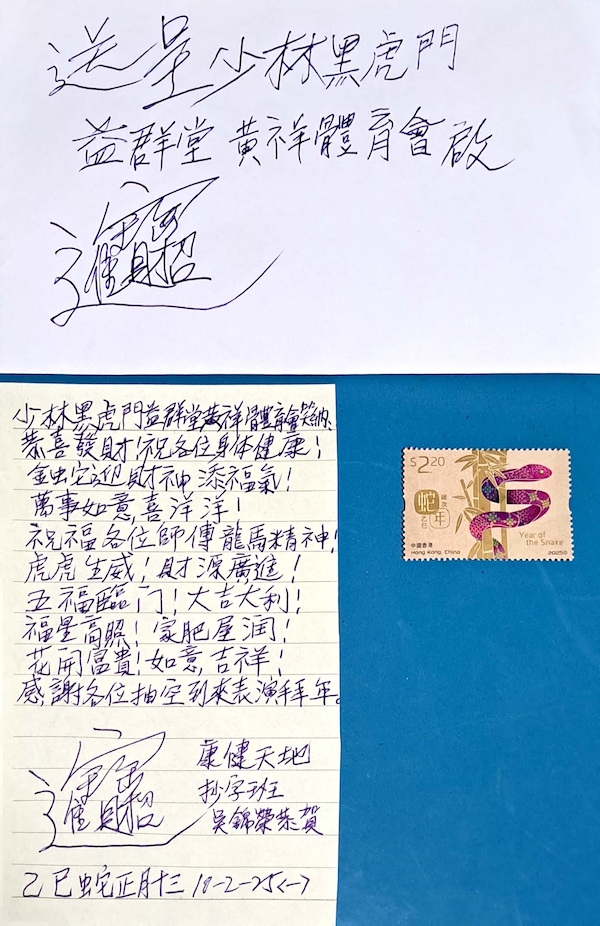 送呈少林黑虎門
益群堂黃祥體育會啟
招財進寶
少林黑虎門益群堂黃祥體育會笑納、
恭喜發財!祝各位身体健康!
金蛇迎財神添福氣!
萬事如意,喜洋洋!
祝福各位師傅龍馬精神!
虎虎生威!財源廣進!
五福臨门!大吉大利!
福星高照!家肥屋润!
花開富貴!如意,吉祥!
感謝各位抽空到來表演拜年。
招財進寶
康健天地
抄字班
吳錦榮恭賀
乙巳蛇正月十三 10-2-25<一>
$2.20
歲次
蛇年
乙巳
Year of
the Snake
中國香港
Hong Kong, China
2025©